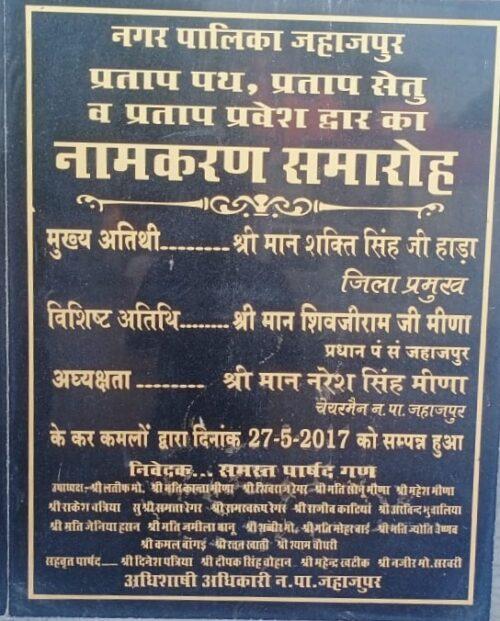 नगर पालिका जहाजपुर
प्रताप पथ, प्रताप सेतु
व प्रताप प्रवेश द्वार का
नामकरण समारोह
मुख्य अतिथी......... श्री मान शक्ति सिंह जी हाड़ा
जिला प्रमुख
विशिष्ट अतिथि....... श्री मान शिवजीराम जी मीणा
प्रधान पं सं जहाजपुर
अध्यक्षता ......... श्री मान नरेश सिंह मीणा
चेयरमैन न.पा. जहाजपुर
के कर कमलों द्वारा दिनांक 27-5-2017 को सम्पन्न हुआ
निवेदक... समस्त पार्षद गण
उपाध्यक्ष--श्री लतीफ मो. श्री मति कान्ता मीणा श्री शिवराज रेगर श्री मति सोनू मीणा श्री महेश मीणा
श्री राकेश पत्रिया सु श्री समता रेगर श्री रामस्वरूप रेगर श्री राजीव कांटिया श्री अरविन्द भुवालिया
श्री मति जेनिया हसन श्री मति जमीला बानू श्री शब्बीर मो. श्री मति मोहर बाई श्री मति ज्योति वैष्णव
श्री कमल बांगड़ श्री रतन खाती श्री श्याम चौधरी
सहवृत पार्षद--- श्री दिनेश पत्रिया श्री दीपक सिंह चौहान श्री महेन्द्र खटीक श्री नजीर मो. सरवरी
अधिशाषी अधिकारी न.पा.जहाजपुर